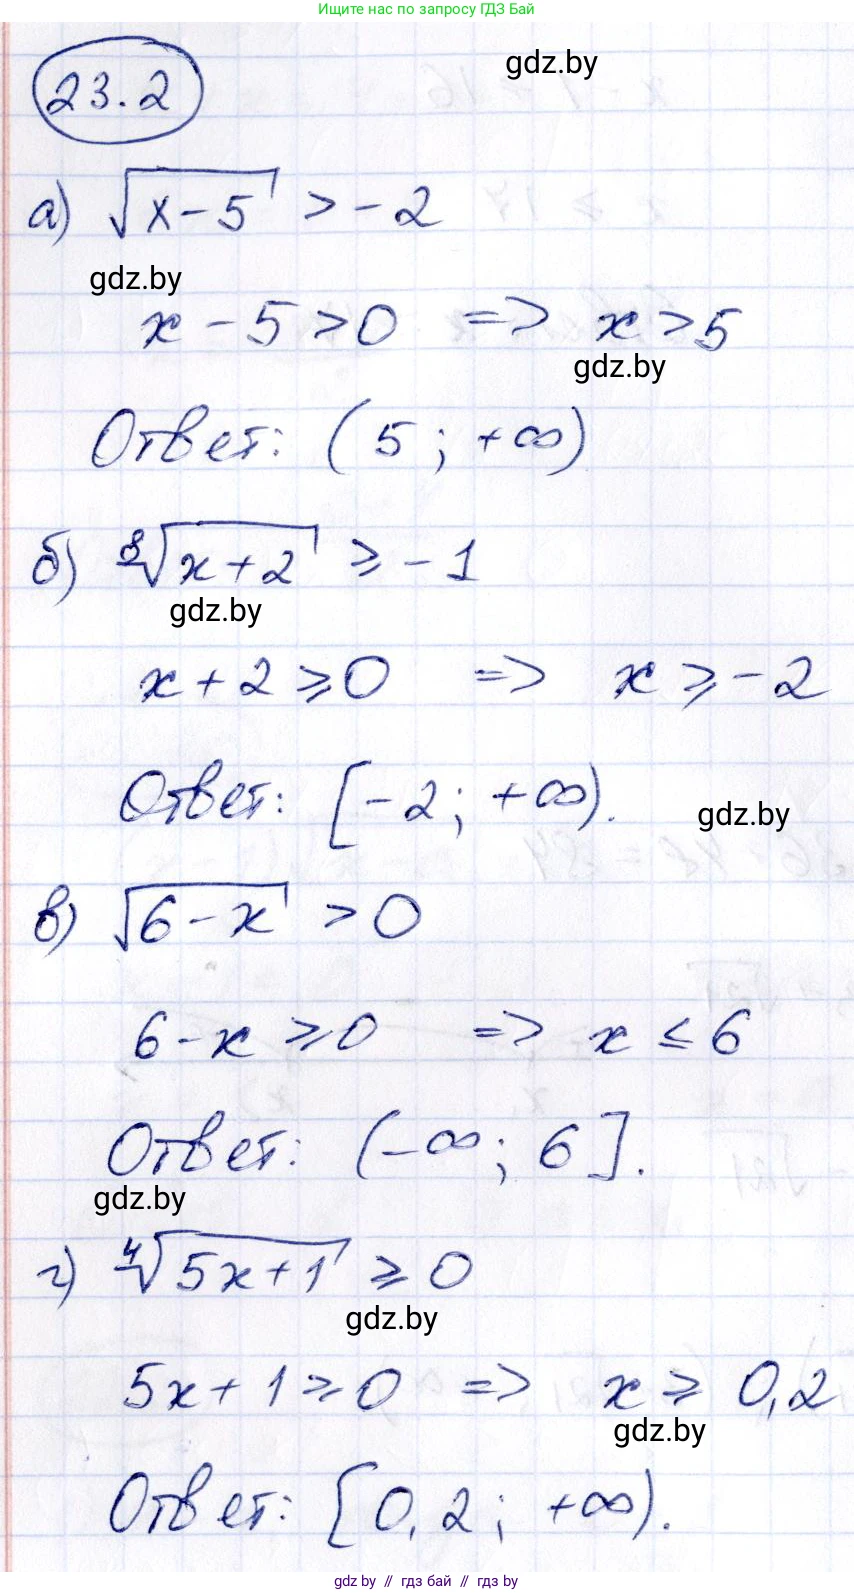 Ищите нас по запросу ГДЗ Бай
23.2
gdz.by
а) √(x-5) > -2
gdz.by
x - 5 > 0 => x > 5
gdz.by
Ответ: (5; +∞)
б) ⁸√(x+2) ≥ -1
gdz.by
x + 2 ≥ 0 => x ≥ -2
Ответ: [-2; +∞).
gdz.by
в) √(6-x) > 0
6-x ≥ 0 => x ≤ 6
Ответ: (-∞; 6].
gdz.by
г) ⁴√(5x+1) ≥ 0
gdz.by
5x+1 ≥ 0 => x ≥ 0,2
gdz.by
Ответ: [0,2; +∞).
gdz.by // гдз бай // gdz by